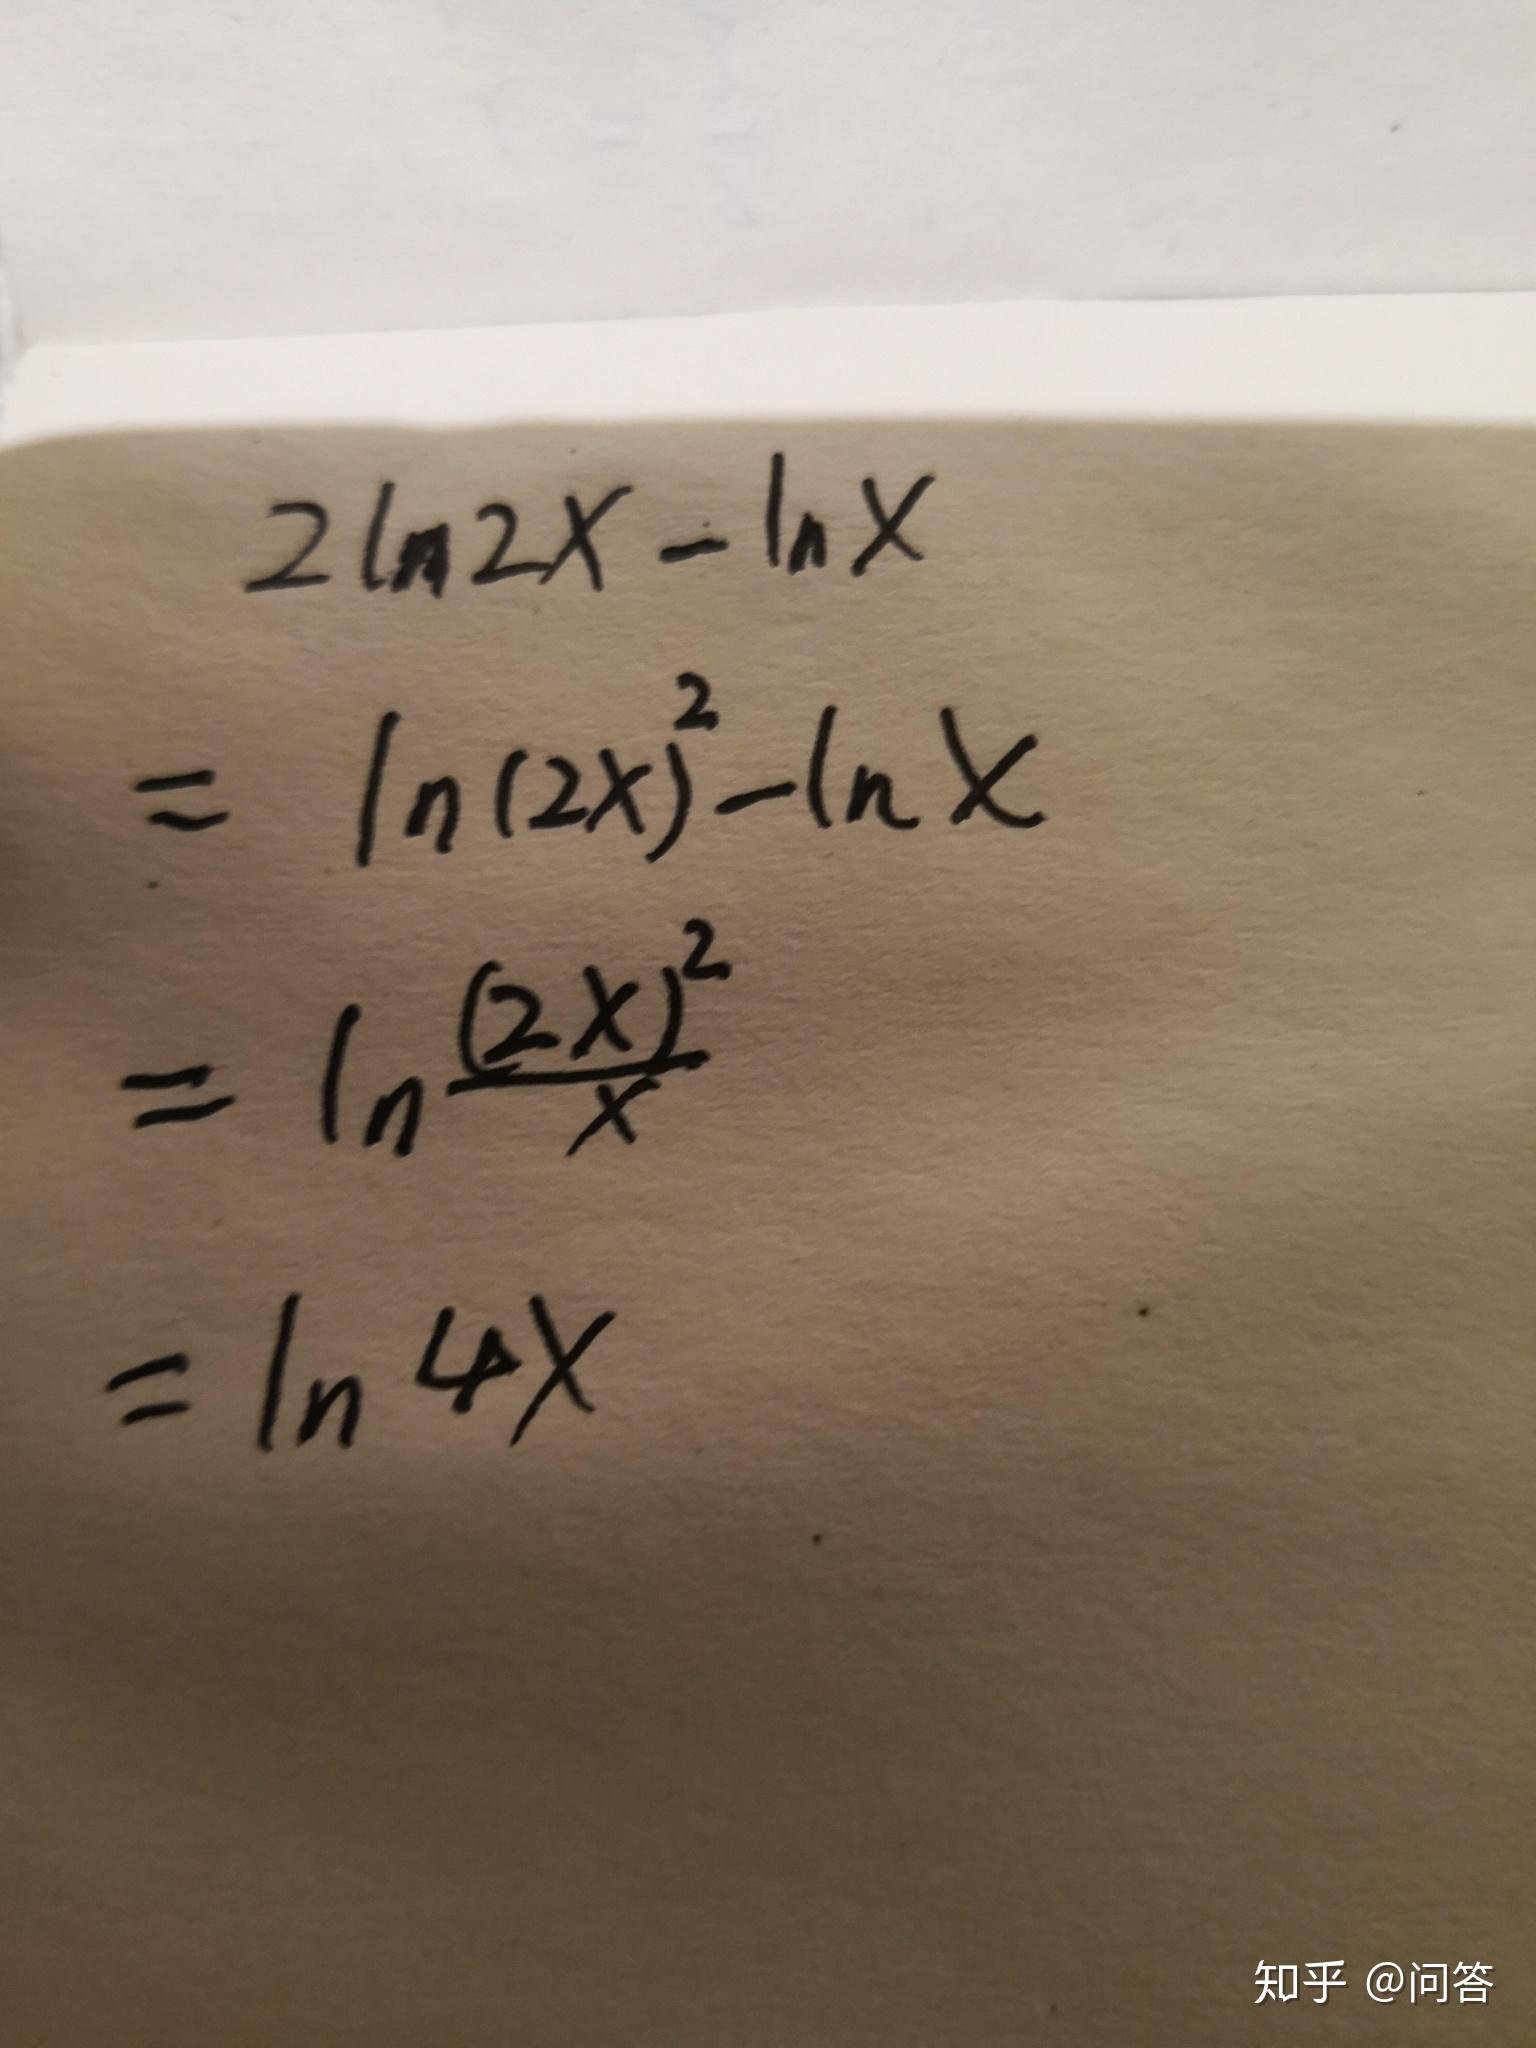 2ln2x-lnx
= ln(2x)²-lnx
= ln (2x)²/x
= ln4x
知乎 @问答